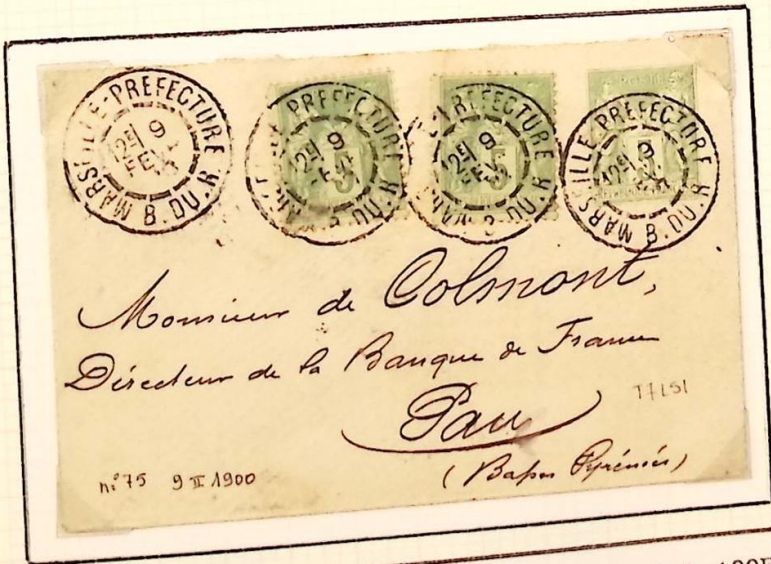 MARSEILLE-PREFECTURE B.DU.R
12E 9
FEVR
MARSEILLE-PREFECTURE B.DU.R
12E 9
5
PREFECTURE
12E 9
FEVR
5
MARSEILLE-PREFECTURE B.DU.R
9
Monsieur de Colmont,
Directeur de la Banque de France
Pau
(Basses Pyrénées)
T7LSI
nº75 9 II 1900